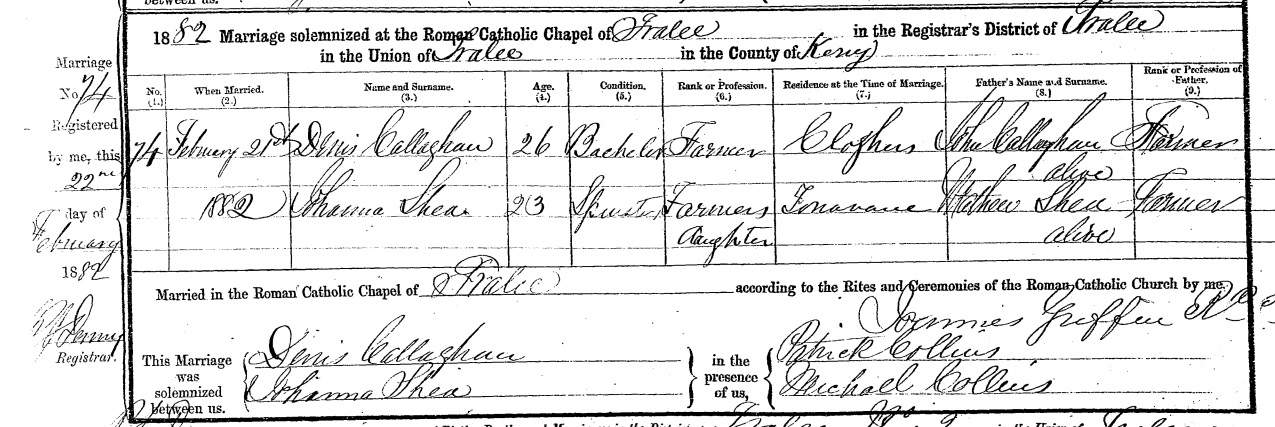 between us.
1882 Marriage solemnized at the Roman Catholic Chapel of Tralee in the Registrar's District of Tralee
in the Union of Tralee in the County of Kerry
No. (1.) When Married. (2.) Name and Surname. (3.) Age. (4.) Condition. (5.) Rank or Profession. (6.) Residence at the Time of Marriage. (7.) Father's Name and Surname. (8.) Rank or Profession of Father. (9.)
74 February 21st Denis Callaghan 26 Bachelor Farmer Cloghers John Callaghan Farmer
alive
1882 Johanna Shea 23 Spinster Farmers Tonavane Mathew Shea Farmer
daughter alive
Marriage
No. 74
Registered
by me, this
22nd
day of
February
1882
Registrar.
Married in the Roman Catholic Chapel of Tralee according to the Rites and Ceremonies of the Roman Catholic Church by me,
Joannes Griffin
This Marriage was solemnized between us.
Denis Callaghan
Johanna Shea
in the presence of us,
Patrick Collins
Michael Collins